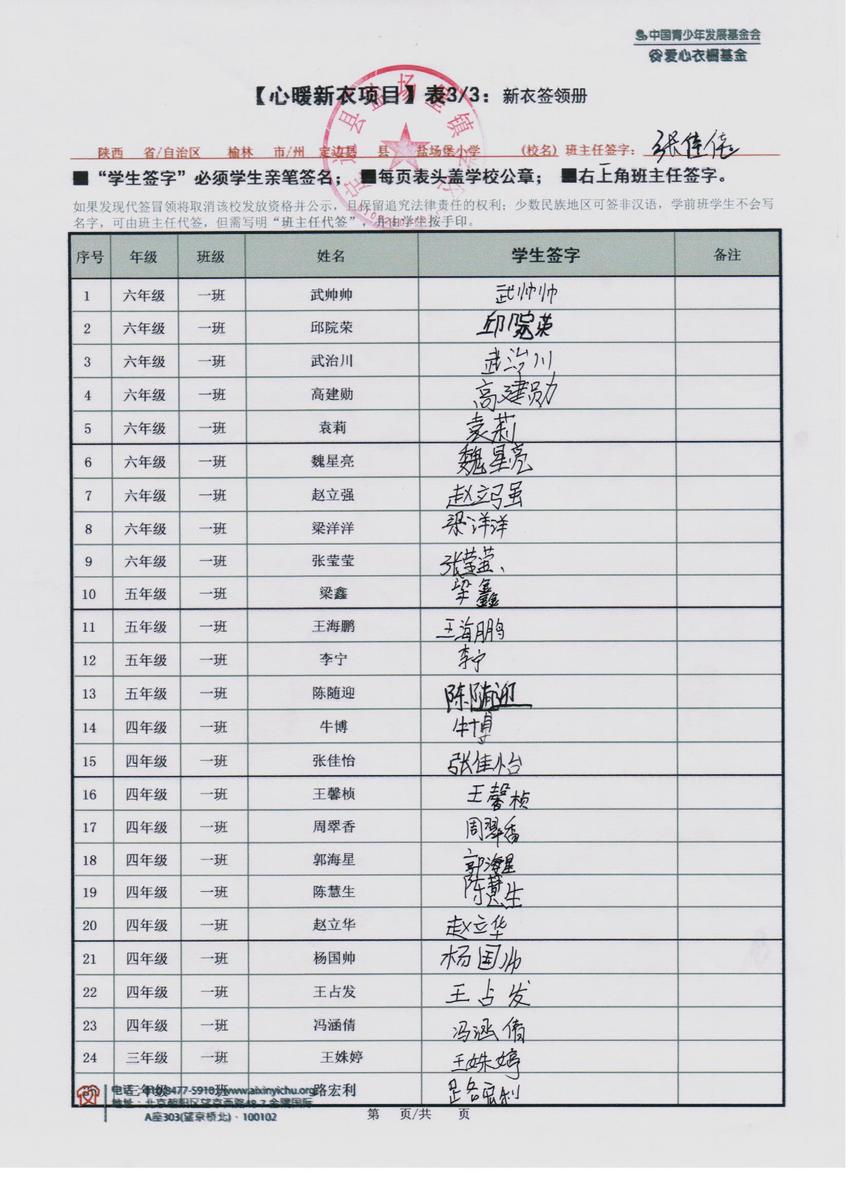 中国青少年发展基金会
爱心衣橱基金
【心暖新衣项目】表3/3：新衣签领册
陕西 省/自治区 榆林 市/州 定边县 县 盐场堡小学 (校名) 班主任签字：
■“学生签字”必须学生亲笔签名；■每页表头盖学校公章；■右上角班主任签字。
如果发现代签冒领将取消该校发放资格并公示，且保留追究法律责任的权利；少数民族地区可签非汉语，学前班学生不会写
名字，可由班主任代签，但需写明“班主任代签”，并由学生按手印。
序号 年级 班级 姓名 学生签字 备注
1 六年级 一班 武帅帅 武帅帅
2 六年级 一班 邱院荣 邱院荣
3 六年级 一班 武治川 武治川
4 六年级 一班 高建勋 高建勋
5 六年级 一班 袁莉 袁莉
6 六年级 一班 魏星亮 魏星亮
7 六年级 一班 赵立强 赵立强
8 六年级 一班 梁洋洋 梁洋洋
9 六年级 一班 张莹莹 张莹莹
10 五年级 一班 梁鑫 梁鑫
11 五年级 一班 王海鹏 王海鹏
12 五年级 一班 李宁 李宁
13 五年级 一班 陈随迎 陈随迎
14 四年级 一班 牛博 牛博
15 四年级 一班 张佳怡 张佳怡
16 四年级 一班 王馨桢 王馨桢
17 四年级 一班 周翠香 周翠香
18 四年级 一班 郭海星 郭海星
19 四年级 一班 陈慧生 陈慧生
20 四年级 一班 赵立华 赵立华
21 四年级 一班 杨国帅 杨国帅
22 四年级 一班 王占发 王占发
23 四年级 一班 冯涵倩 冯涵倩
24 三年级 一班 王姝婷 王姝婷
三年级 一班 路宏利 路宏利
www.aixinyichu.org
A座303(望京桥北)·100102
第 页/共 页